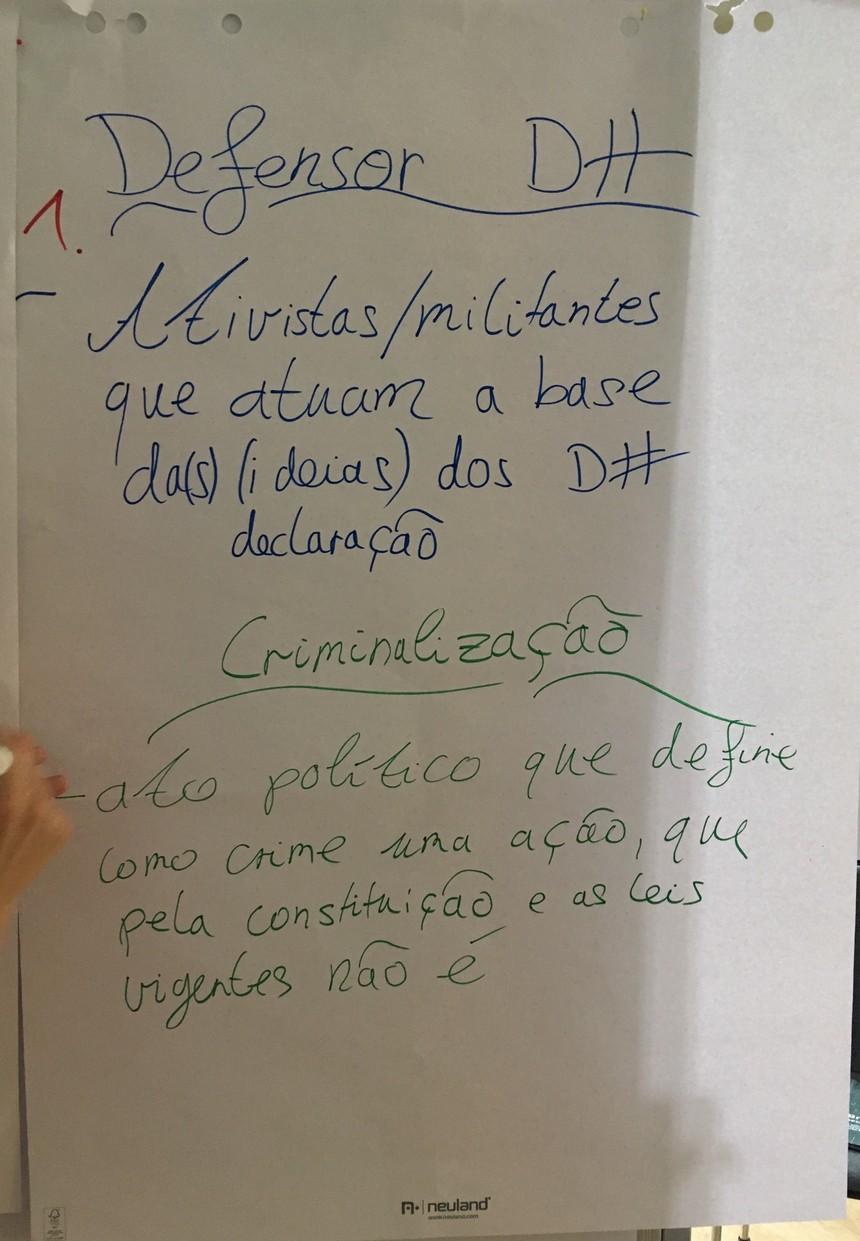 Defensor DH
1.
- Ativistas/militantes
que atuam a base
da(s) (ideias) dos DH
declaração
Criminalização
- ato político que define
como crime uma ação, que
pela constituição e as leis
vigentes não é
neuland
www.neuland.com
FSC